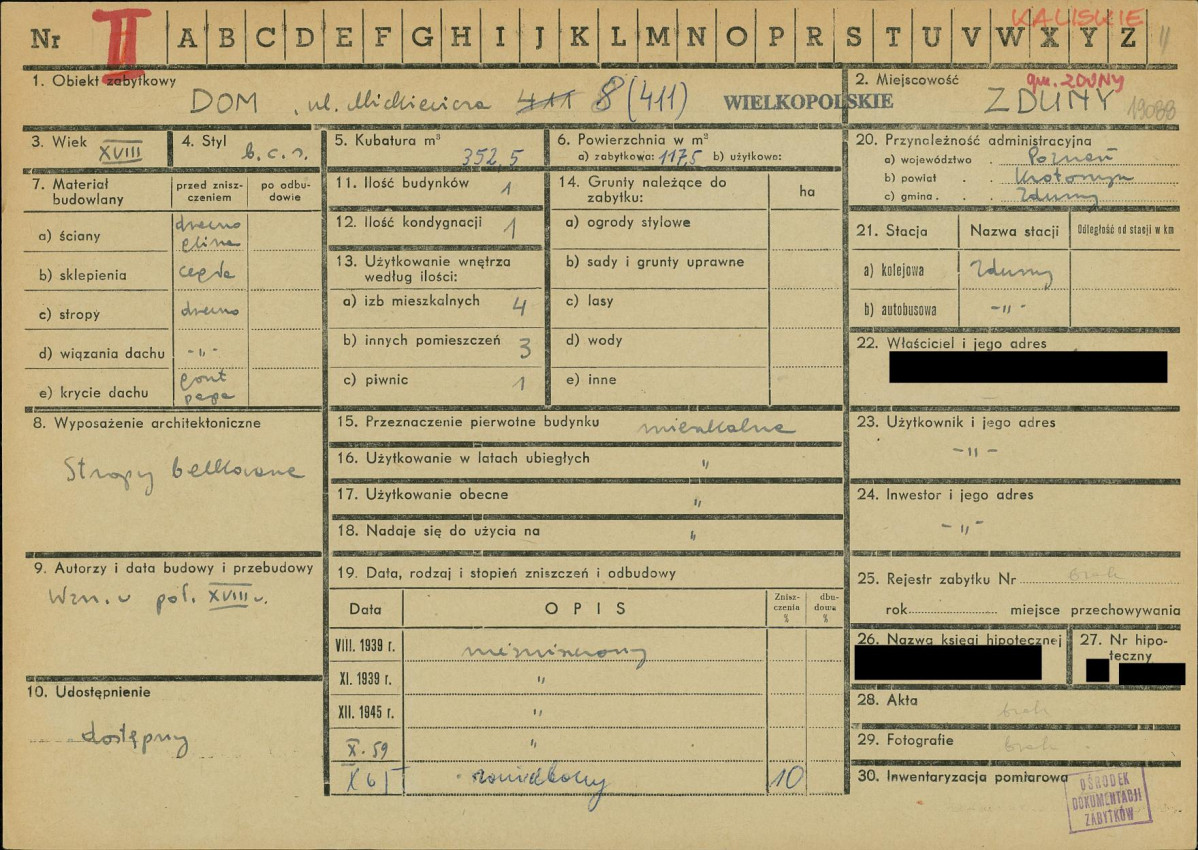 Nr II A B C D E F G H I J K L M N O P R S T U V W X Y Z
KALISKIE
1. Obiekt zabytkowy
DOM, ul. Mickiewicza 411 8 (411)
WIELKOPOLSKIE
2. Miejscowość
gm. ZDUNY
ZDUNY
19088
3. Wiek XVIII
4. Styl b.c.s.
5. Kubatura m³ 352,5
6. Powierzchnia w m²
a) zabytkowa: 117,5 b) użytkowa:
7. Materiał budowlany
przed zniszczeniem
po odbudowie
a) ściany drewno glina
b) sklepienia cegła
c) stropy drewno
d) wiązania dachu -„-
e) krycie dachu gont papa
8. Wyposażenie architektoniczne
Stropy belkowane
9. Autorzy i data budowy i przebudowy
Wzn. w poł. XVIII w.
10. Udostępnienie
dostępny
11. Ilość budynków 1
12. Ilość kondygnacji 1
13. Użytkowanie wnętrza według ilości:
a) izb mieszkalnych 4
b) innych pomieszczeń 3
c) piwnic 1
14. Grunty należące do zabytku:
ha
a) ogrody stylowe
b) sady i grunty uprawne
c) lasy
d) wody
e) inne
15. Przeznaczenie pierwotne budynku mieszkalne
16. Użytkowanie w latach ubiegłych „
17. Użytkowanie obecne „
18. Nadaje się do użycia na „
19. Data, rodzaj i stopień zniszczeń i odbudowy
Data
OPIS
Zniszczenia %
dbudowa %
VIII. 1939 r. niezniszczony
XI. 1939 r. „
XII. 1945 r. „
X. 59 „
zaniedbany 10
20. Przynależność administracyjna
a) województwo Poznań
b) powiat Krotoszyn
c) gmina Zduny
21. Stacja
Nazwa stacji
Odległość od stacji w km
a) kolejowa Zduny
b) autobusowa -„-
22. Właściciel i jego adres
23. Użytkownik i jego adres
-„-
24. Inwestor i jego adres
-„-
25. Rejestr zabytku Nr brak
rok miejsce przechowywania
26. Nazwa księgi hipotecznej
27. Nr hipoteczny
28. Akta
brak
29. Fotografie
brak
30. Inwentaryzacja pomiarowa
OŚRODEK
DOKUMENTACJI
ZABYTKÓW